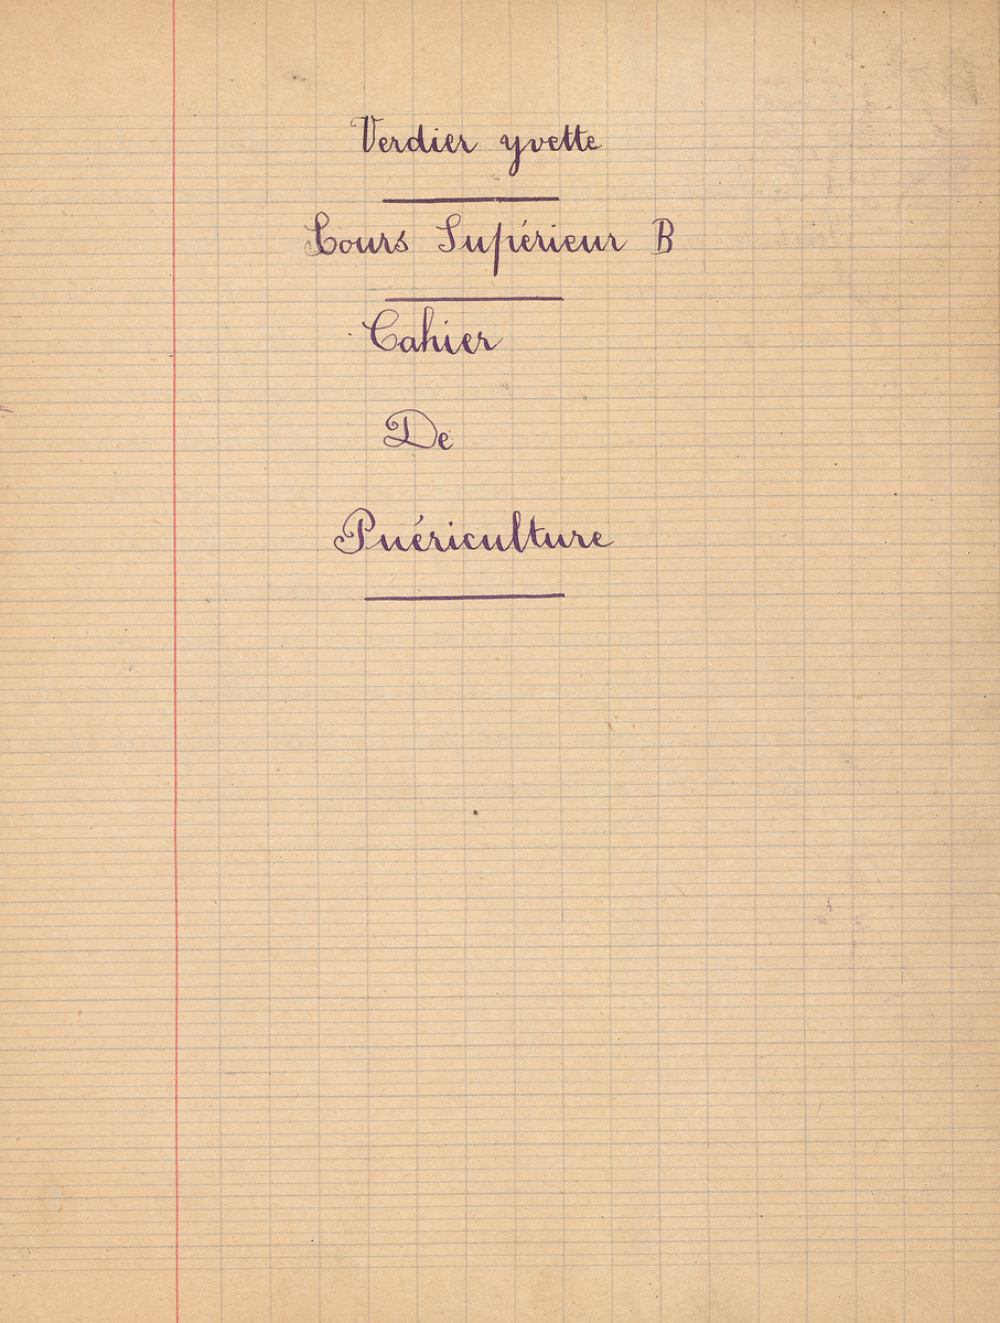 Verdier yvette
Cours Supérieur B
Cahier
De
Puériculture